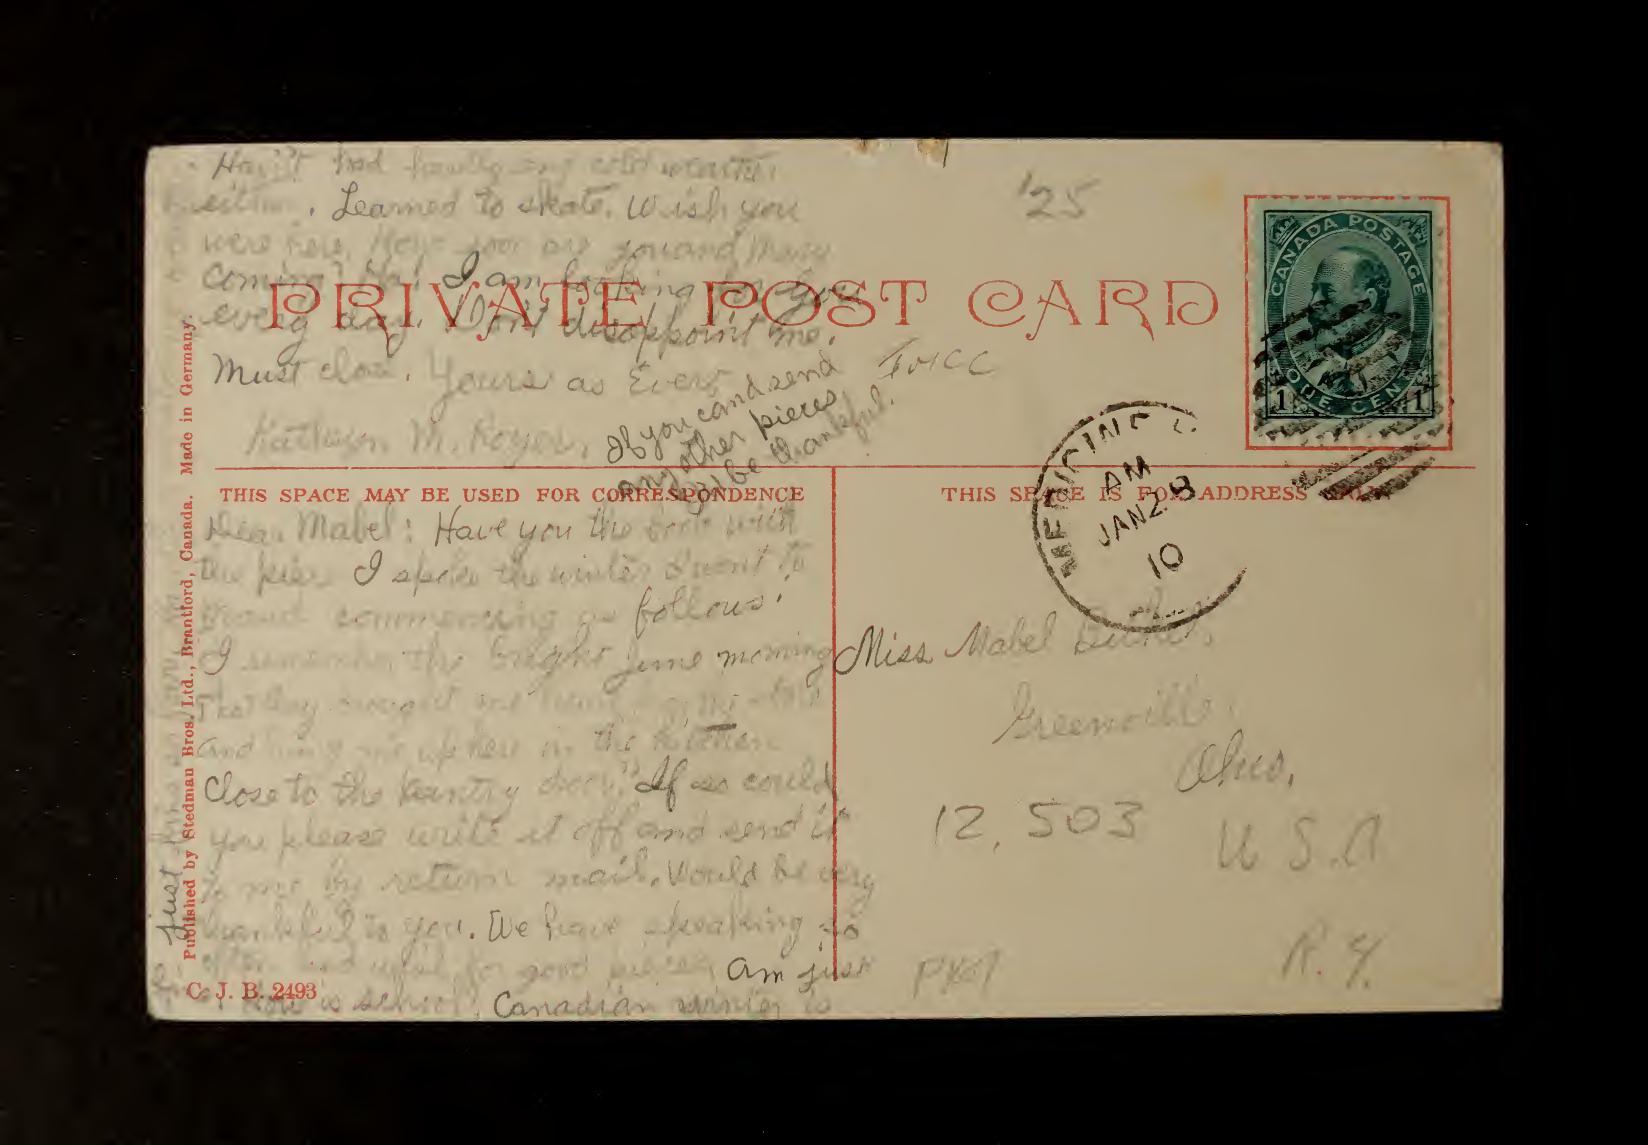 Hav'nt had hardly any cold weather
. Learned to skate. Wish you
were here. How soon are you and Mary
coming? I am looking for you
every day. Don't disappoint me.
Must close. Yours as Ever
Kathryn M. Royer.
If you cand send
any other pieces
be thankful.
'25
PRIVATE POST CARD
CANADA POSTAGE
1 ONE CENT 1
MEDICINE
AM
JAN 28
10
THIS SPACE MAY BE USED FOR CORRESPONDENCE
THIS SPACE IS FOR ADDRESS
Dear Mabel: Have you the book with
the piece I spoke the winter I went to
commencing as follows:
I remember the bright June morning
That they brought me home from the
and hung me up here in the kitchen
Close to the Pantry door." If so could
you please write it off and send it
to me by return mail. Would be very
thankful to you. We have speaking so
often and for good pieces. Am just
is school. Canadian winter is
just
Miss Mabel
Greenville,
Ohio.
12,503
U S.A
R. 4.
Published by Stedman Bros. Ltd., Brantford, Canada. Made in Germany.
C. J. B. 2493